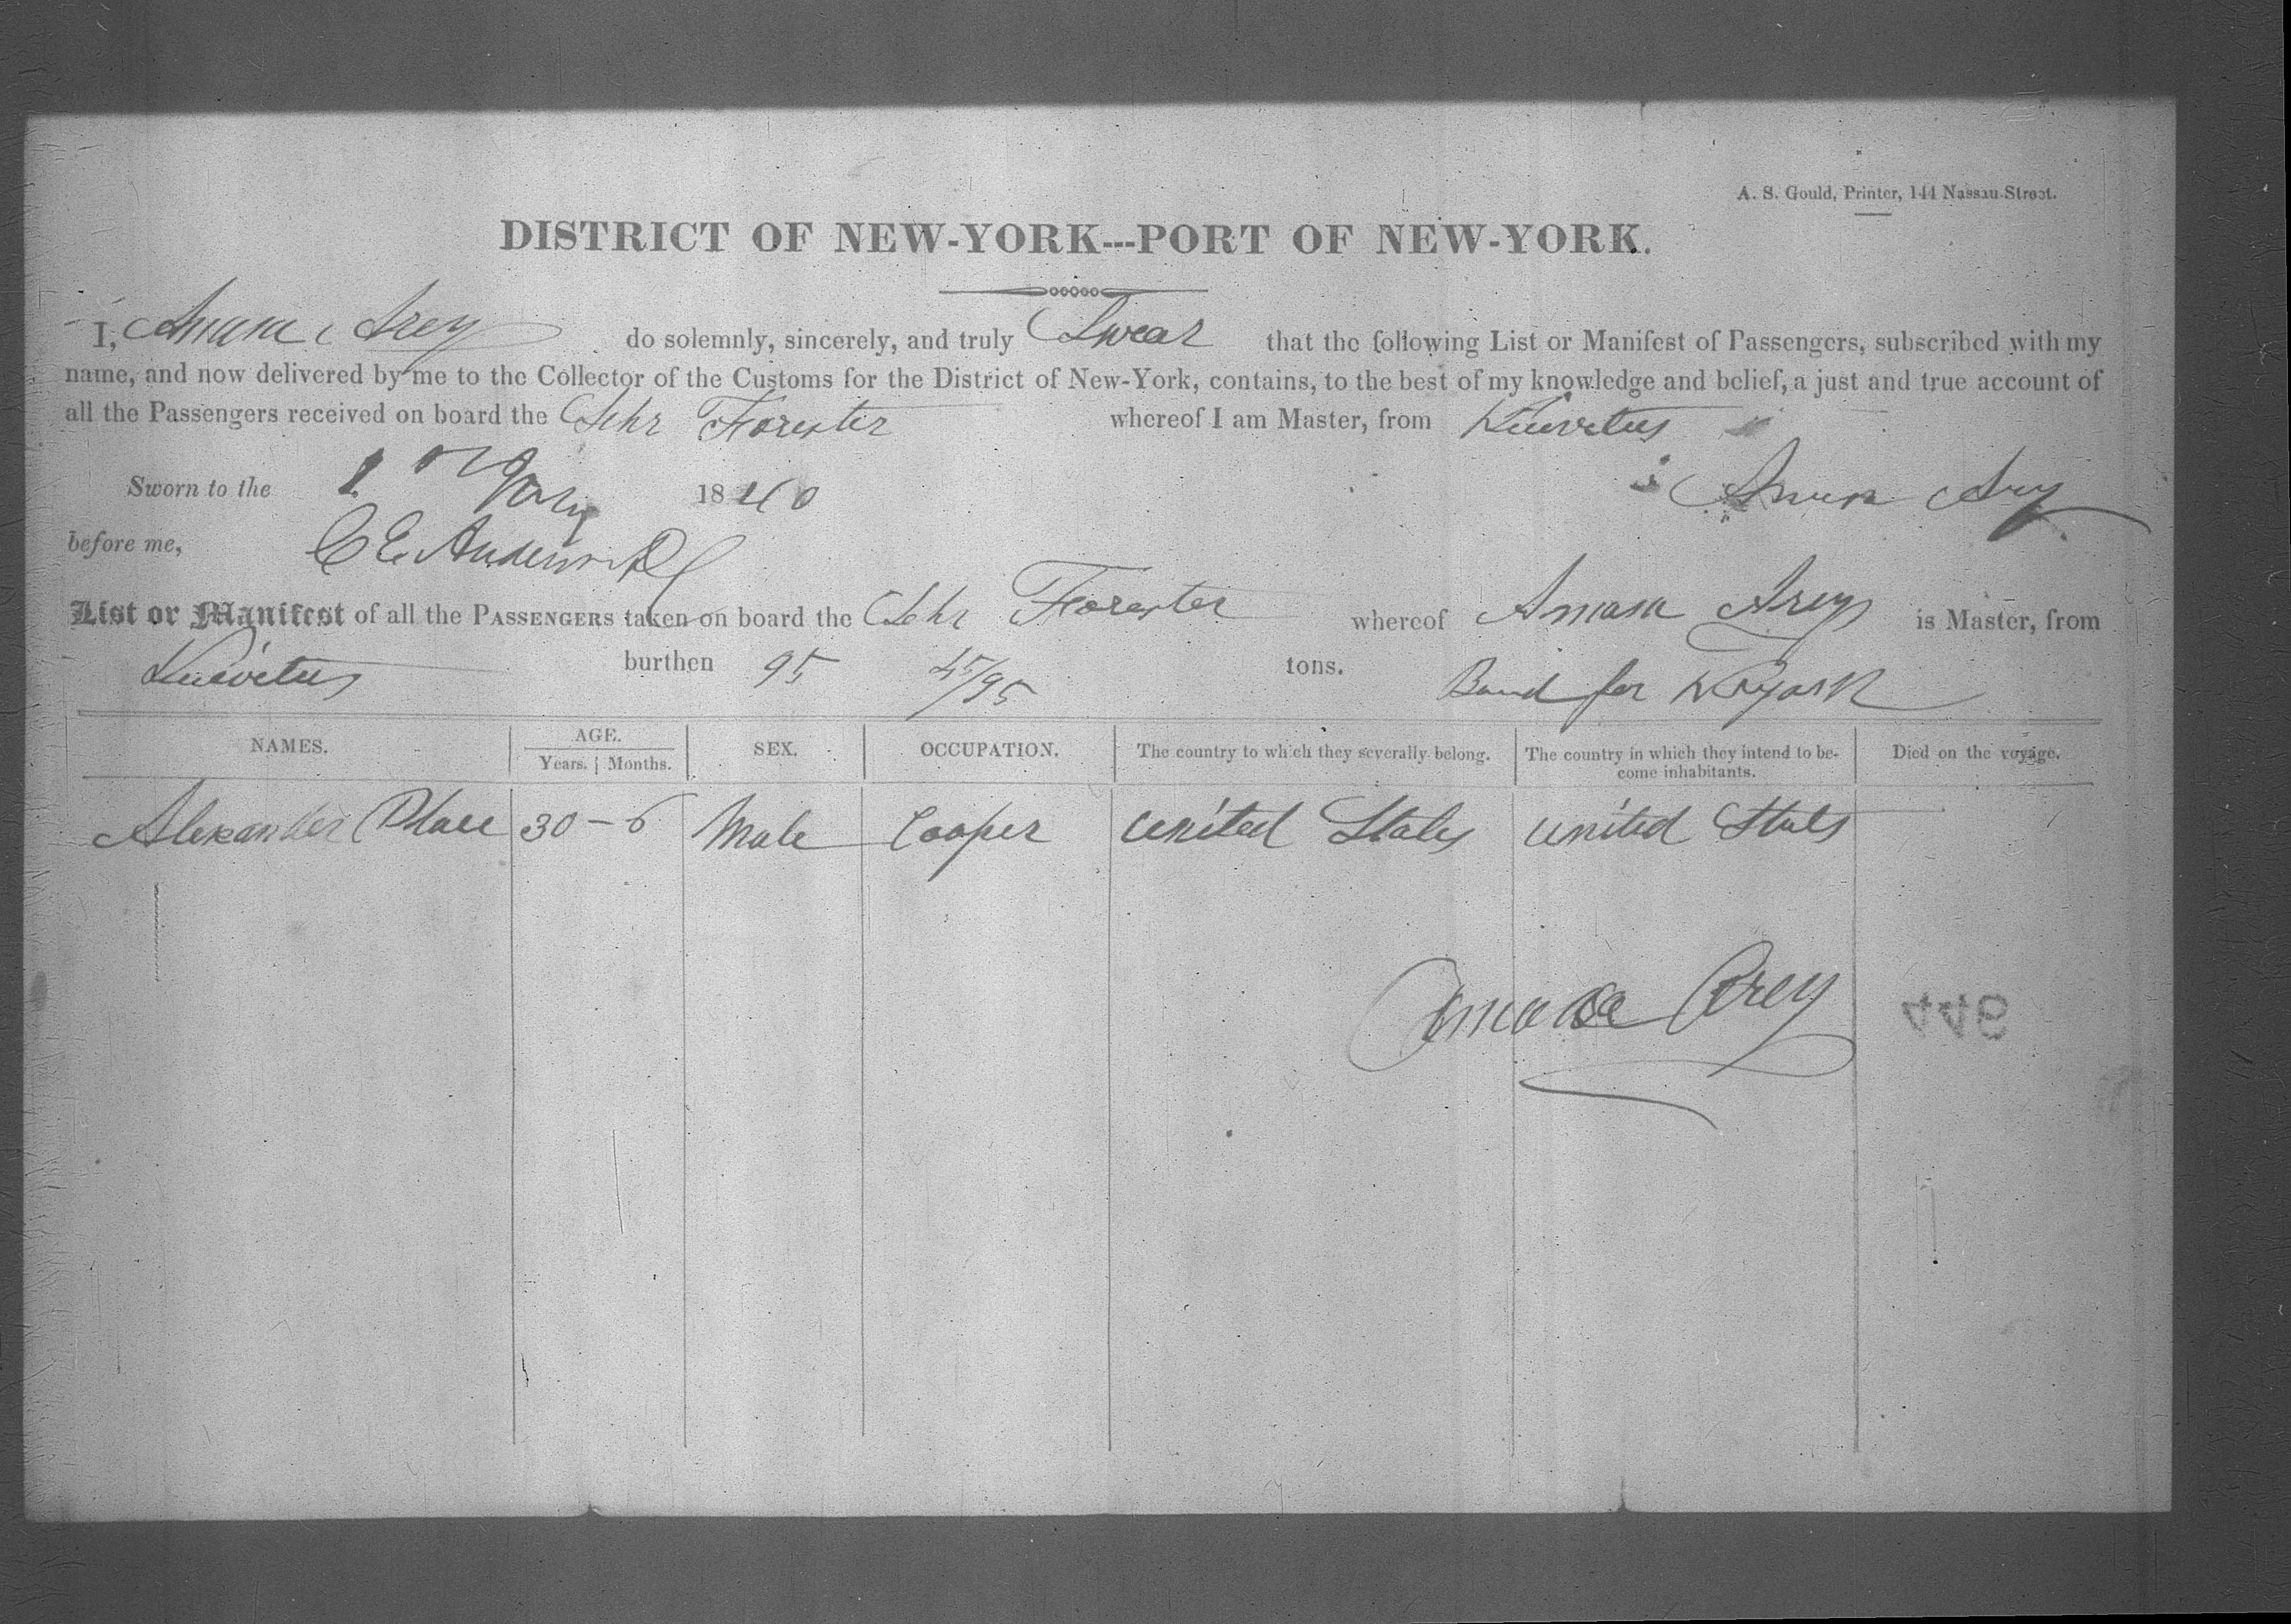 A. S. Gould, Printer, 144 Nassau-Street.
DISTRICT OF NEW-YORK---PORT OF NEW-YORK.
I, Amasa Arey do solemnly, sincerely, and truly Swear that the following List or Manifest of Passengers, subscribed with my
name, and now delivered by me to the Collector of the Customs for the District of New-York, contains, to the best of my knowledge and belief, a just and true account of
all the Passengers received on board the Schr Forester whereof I am Master, from
Sworn to the 1840 Amasa Arey
before me, C E Anderson
List or Manifest of all the PASSENGERS taken on board the Schr Forester whereof Amasa Arey is Master, from
burthen 95 45/95 tons. Bound for N York
NAMES. AGE. SEX. OCCUPATION. The country to which they severally belong. The country in which they intend to be- Died on the voyage.
Years. Months. come inhabitants.
Alexander 30 - 6 Male Cooper United States United States
Amasa Arey
446